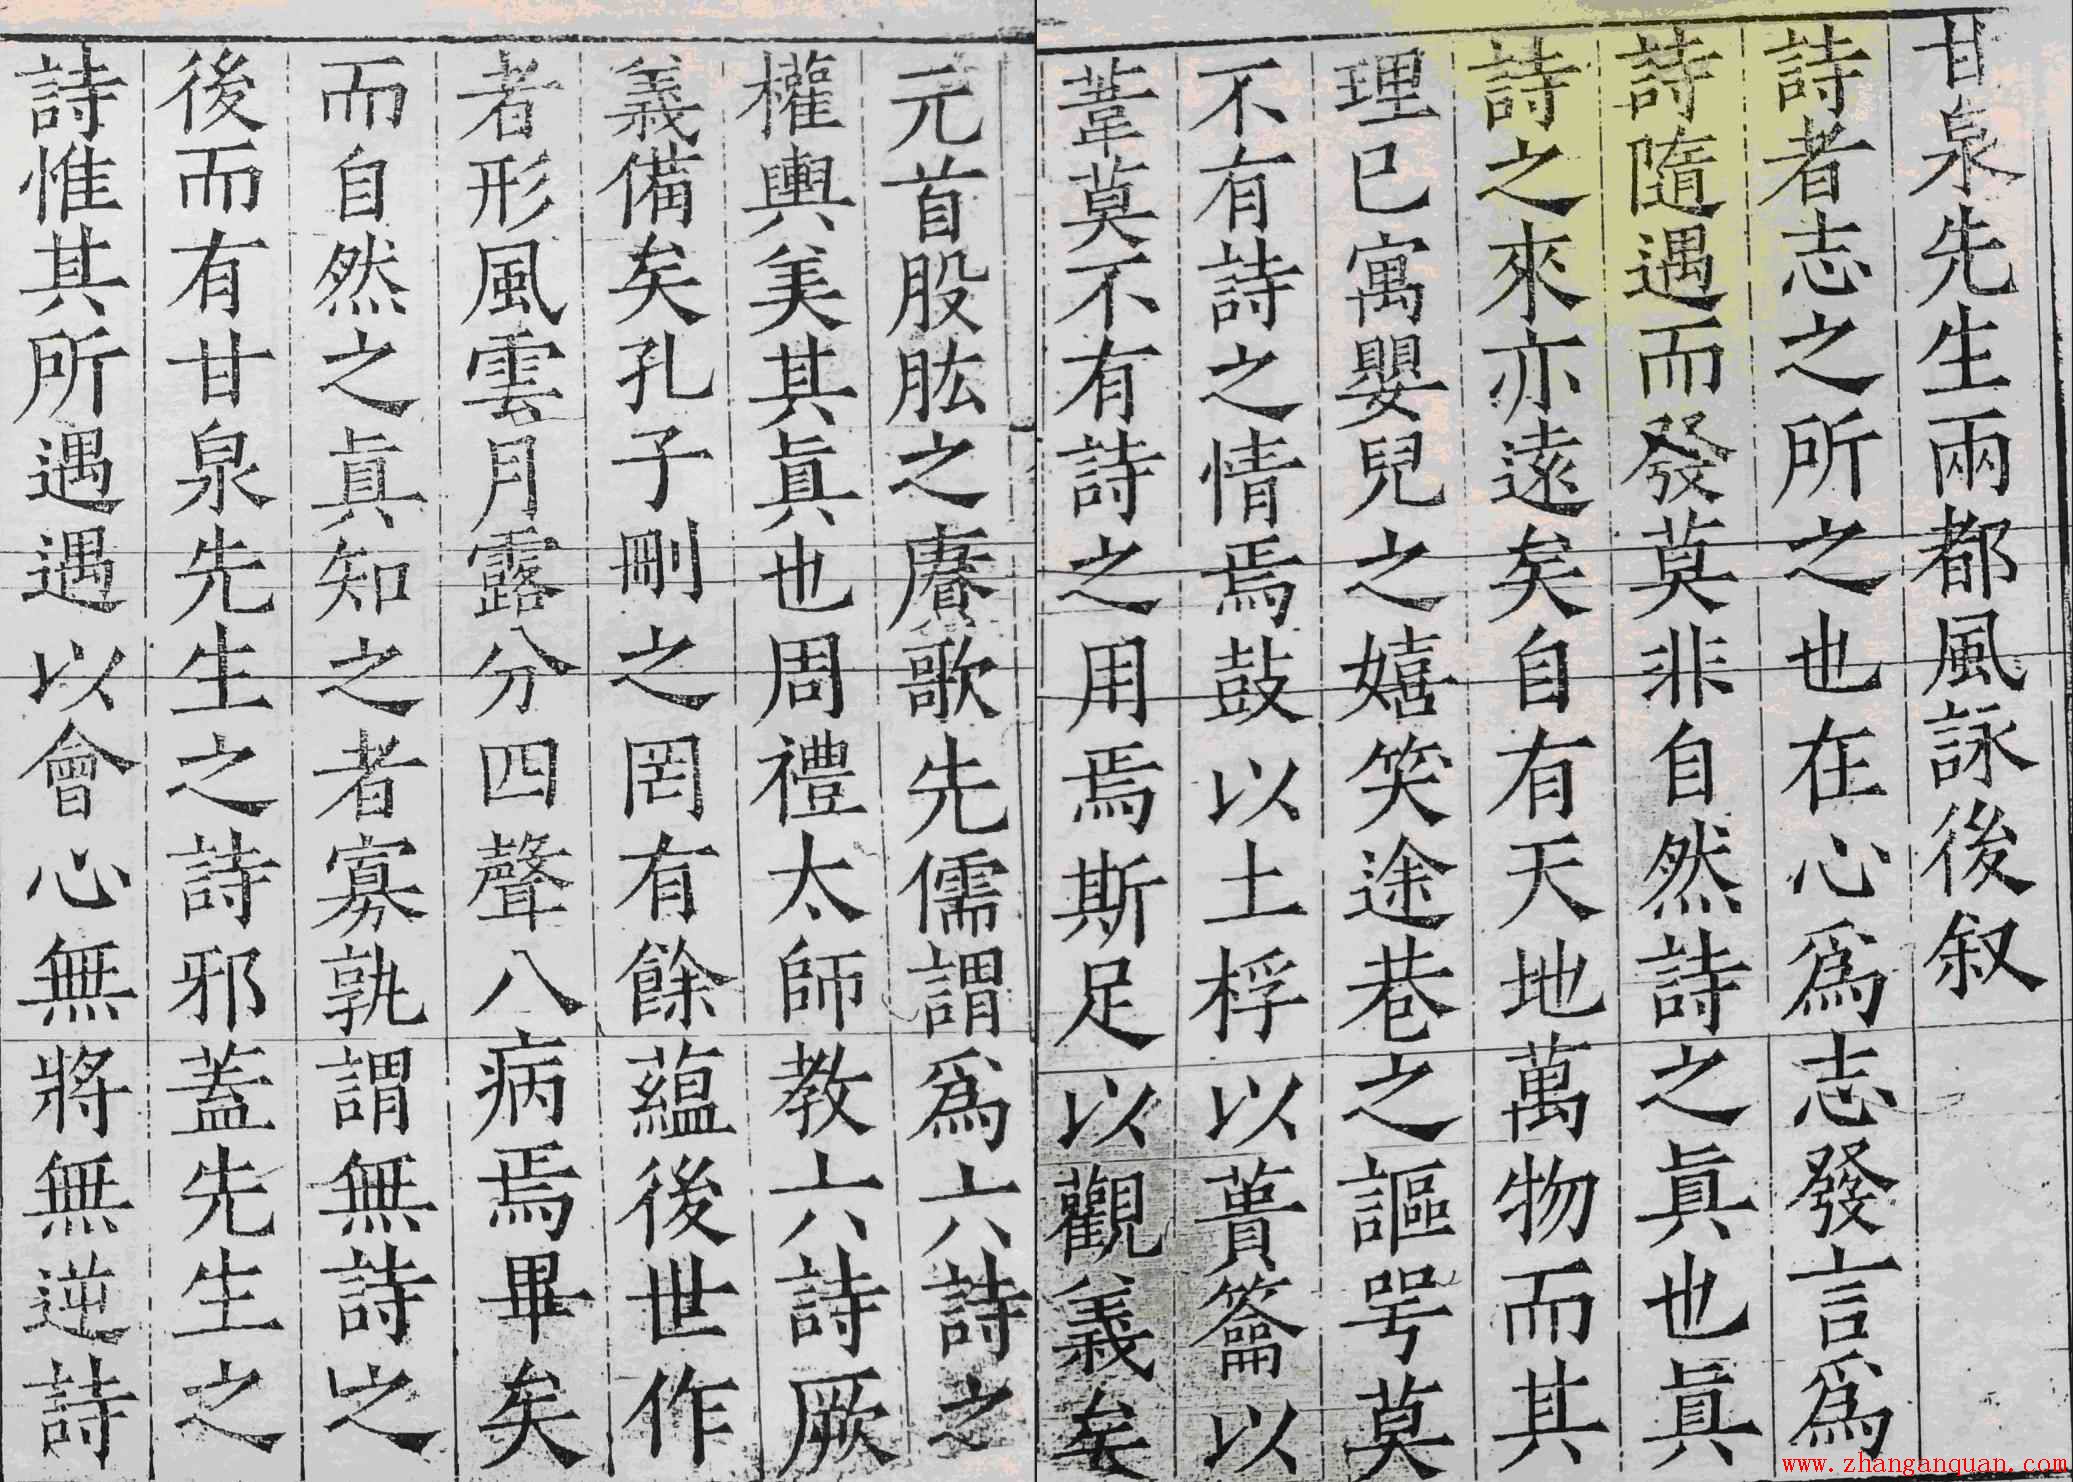 甘泉先生兩都風詠後叙
詩者志之所之也在心爲志發言爲
詩隨遇而發莫非自然詩之眞也眞
詩之來亦遠矣自有天地萬物而其
理已寓嬰兒之嬉笑途巷之謳咢莫
不有詩之情焉鼓以土桴以蕢籥以
葦莫不有詩之用焉斯足以觀義矣
元首股肱之賡歌先儒謂爲六詩之
權輿美其眞也周禮太師教六詩厥
義備矣孔子刪之罔有餘蘊後世作
者形風雲月露分四聲八病焉畢矣
而自然之眞知之者寡孰謂無詩之
後而有甘泉先生之詩邪蓋先生之
詩惟其所遇遇以會心無將無逆詩
www.zhanganquan.com